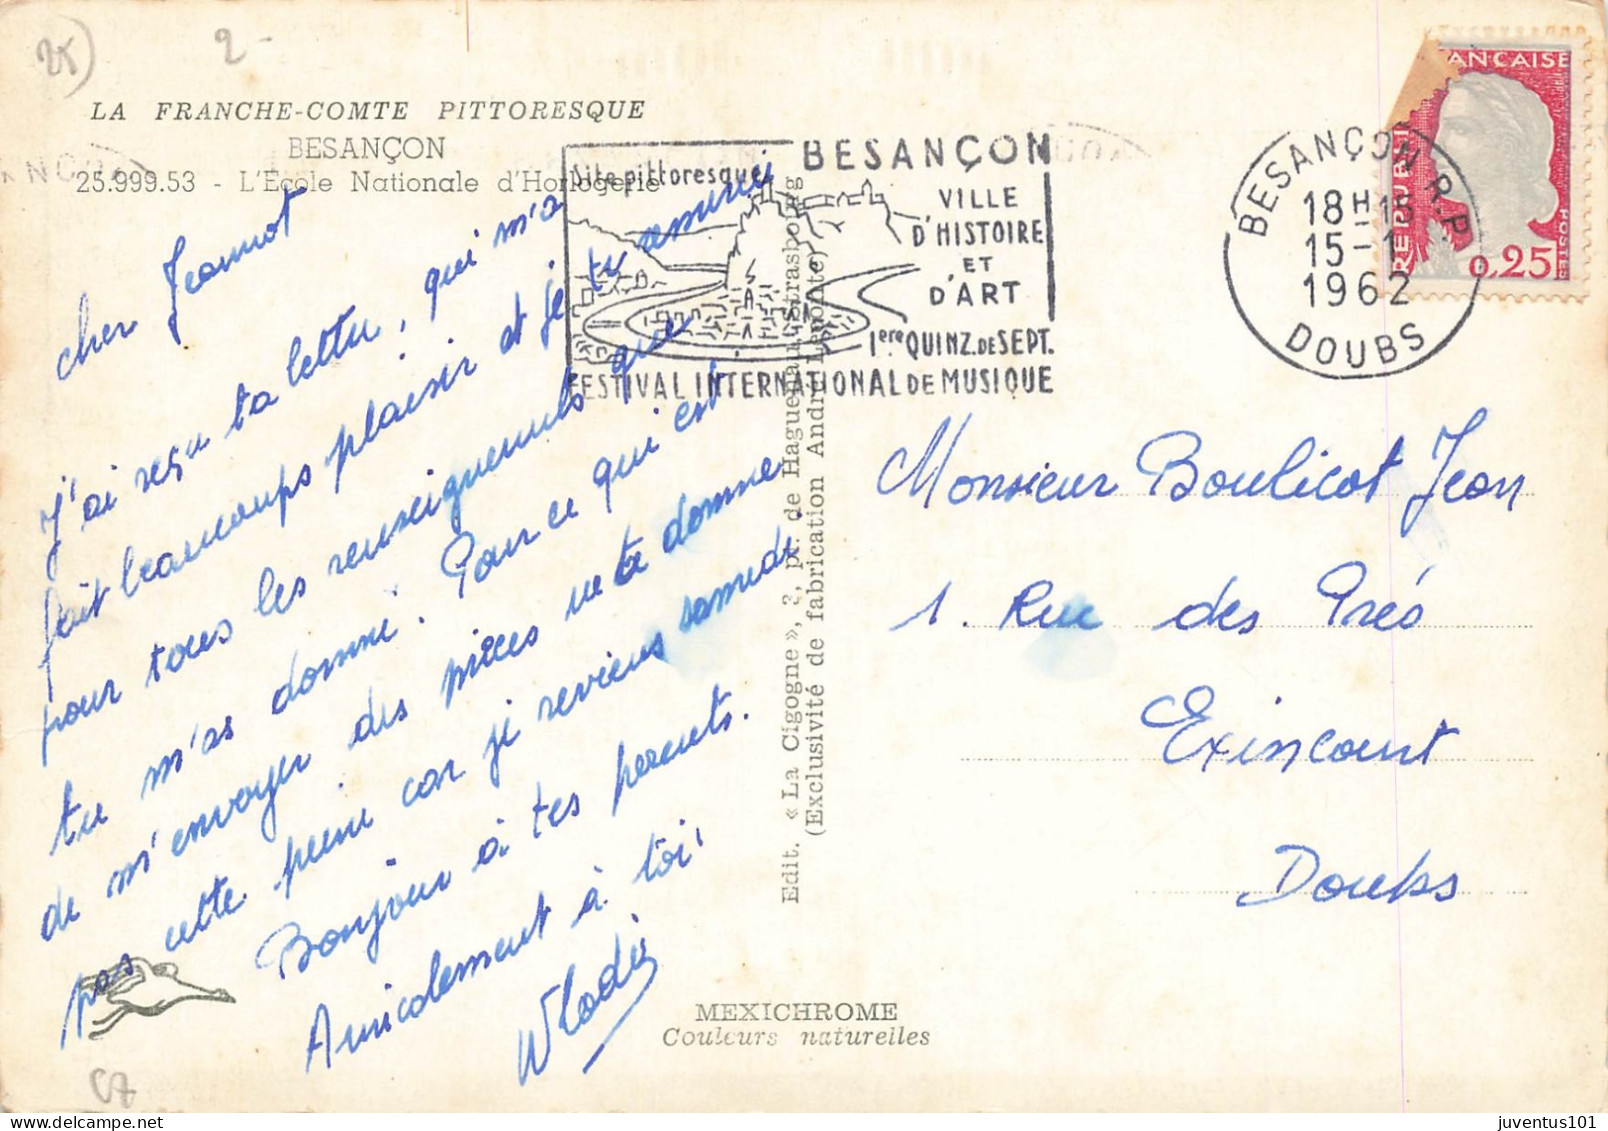 25)
2-
LA FRANCHE-COMTE PITTORESQUE
BESANÇON
25.999.53 - L'École Nationale d'Horlogerie
cher Jeannot
J'ai reçu ta lettre, qui m'a
fait beaucoups plaisir et je te remerci
pour tous les renseignements que
tu m'as donné. Pour ce qui est
de m'envoyer des pièces ne te donne
pas cette peine car je reviens samedi.
Bonjour à tes parents.
Amicalement à toi
Wlodi
Site pittoresque
BESANÇON
VILLE
D'HISTOIRE
ET
D'ART
1ere QUINZ. DE SEPT.
FESTIVAL INTERNATIONAL DE MUSIQUE
BESANÇON R.P.
18H15
15-1
1962
DOUBS
RÉPUBLI
ANÇAISE
POSTES
0,25
Edit. « La Cigogne », 2, pl. de Haguenau, Strasbourg
(Exclusivité de fabrication André Leconte)
Monsieur Boulicot Jean
1. Rue des Prés
Exincourt
Doubs
MEXICHROME
Couleurs naturelles
juventus101